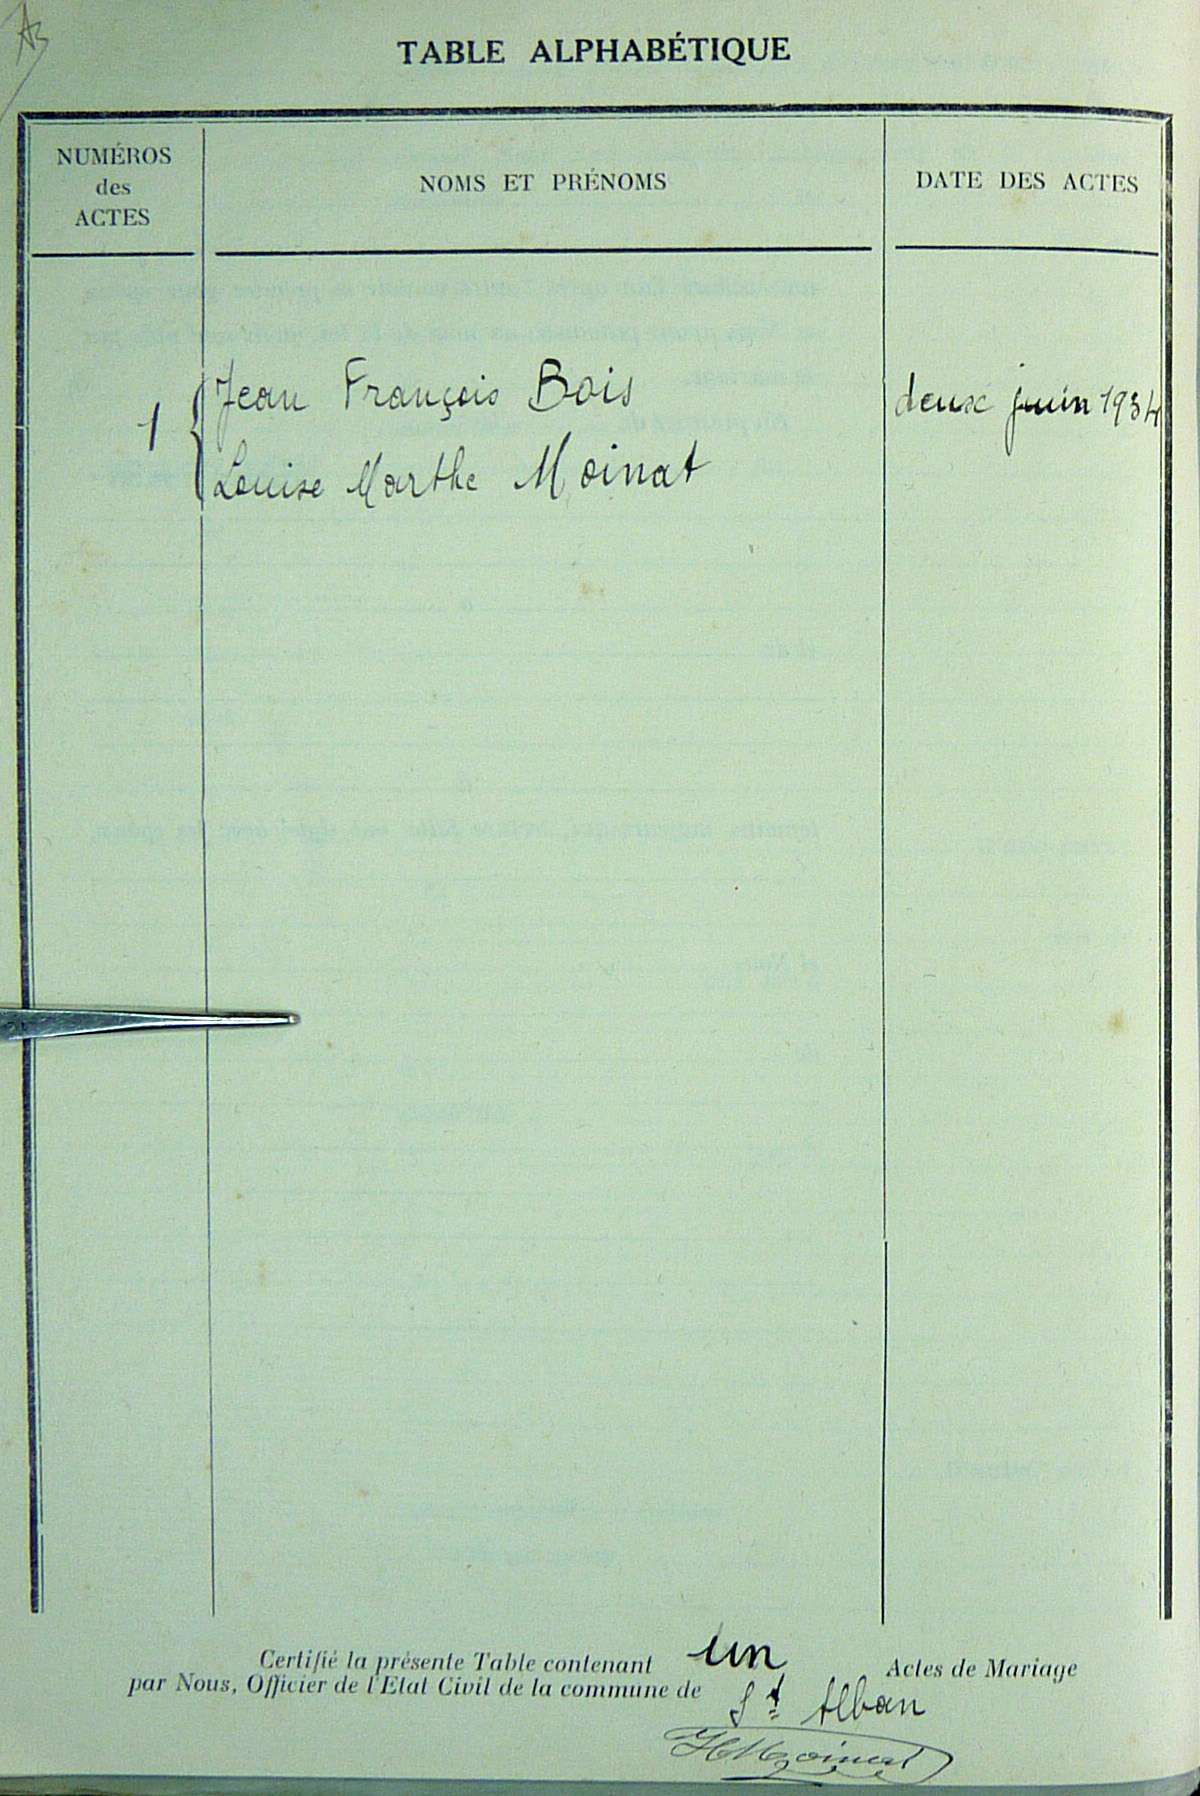 TABLE ALPHABÉTIQUE
NUMÉROS
des
ACTES
NOMS ET PRÉNOMS
DATE DES ACTES
1
Jean François Bois
Louise Marthe Moinat
deux juin 1934
Certifié la présente Table contenant un Actes de Mariage
par Nous, Officier de l'Etat Civil de la commune de St Alban
Moinat